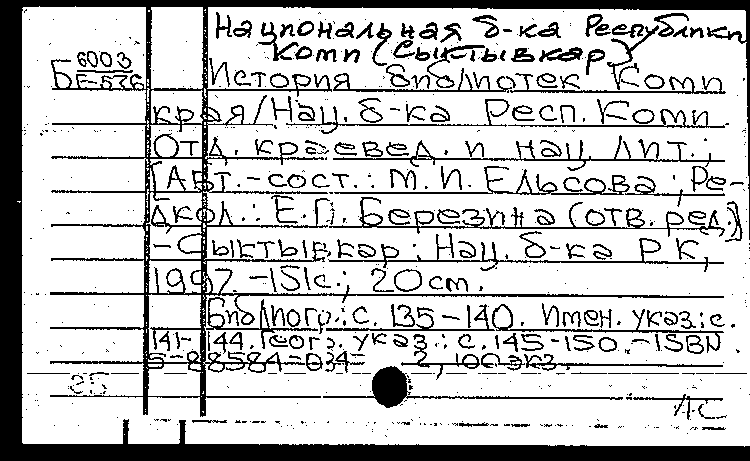 Национальная б-ка Республики
Коми (Сыктывкар)
Б 6003
История библиотек Коми
края/Нац. б-ка Респ. Коми
Отд. краевед. и нац. лит.;
[Авт.-сост.: М. И. Ельсова; Ре-
дкол.: Е.П. Березина (отв. ред.)]
-Сыктывкар: Нац. б-ка РК,
1997.-151с.; 20см.
Библиогр.: с. 135-140. Имен. указ.: с.
141-144. Геогр. указ.: с. 145-150.-ISBN
5-88584-034- 2, 100 экз.
85